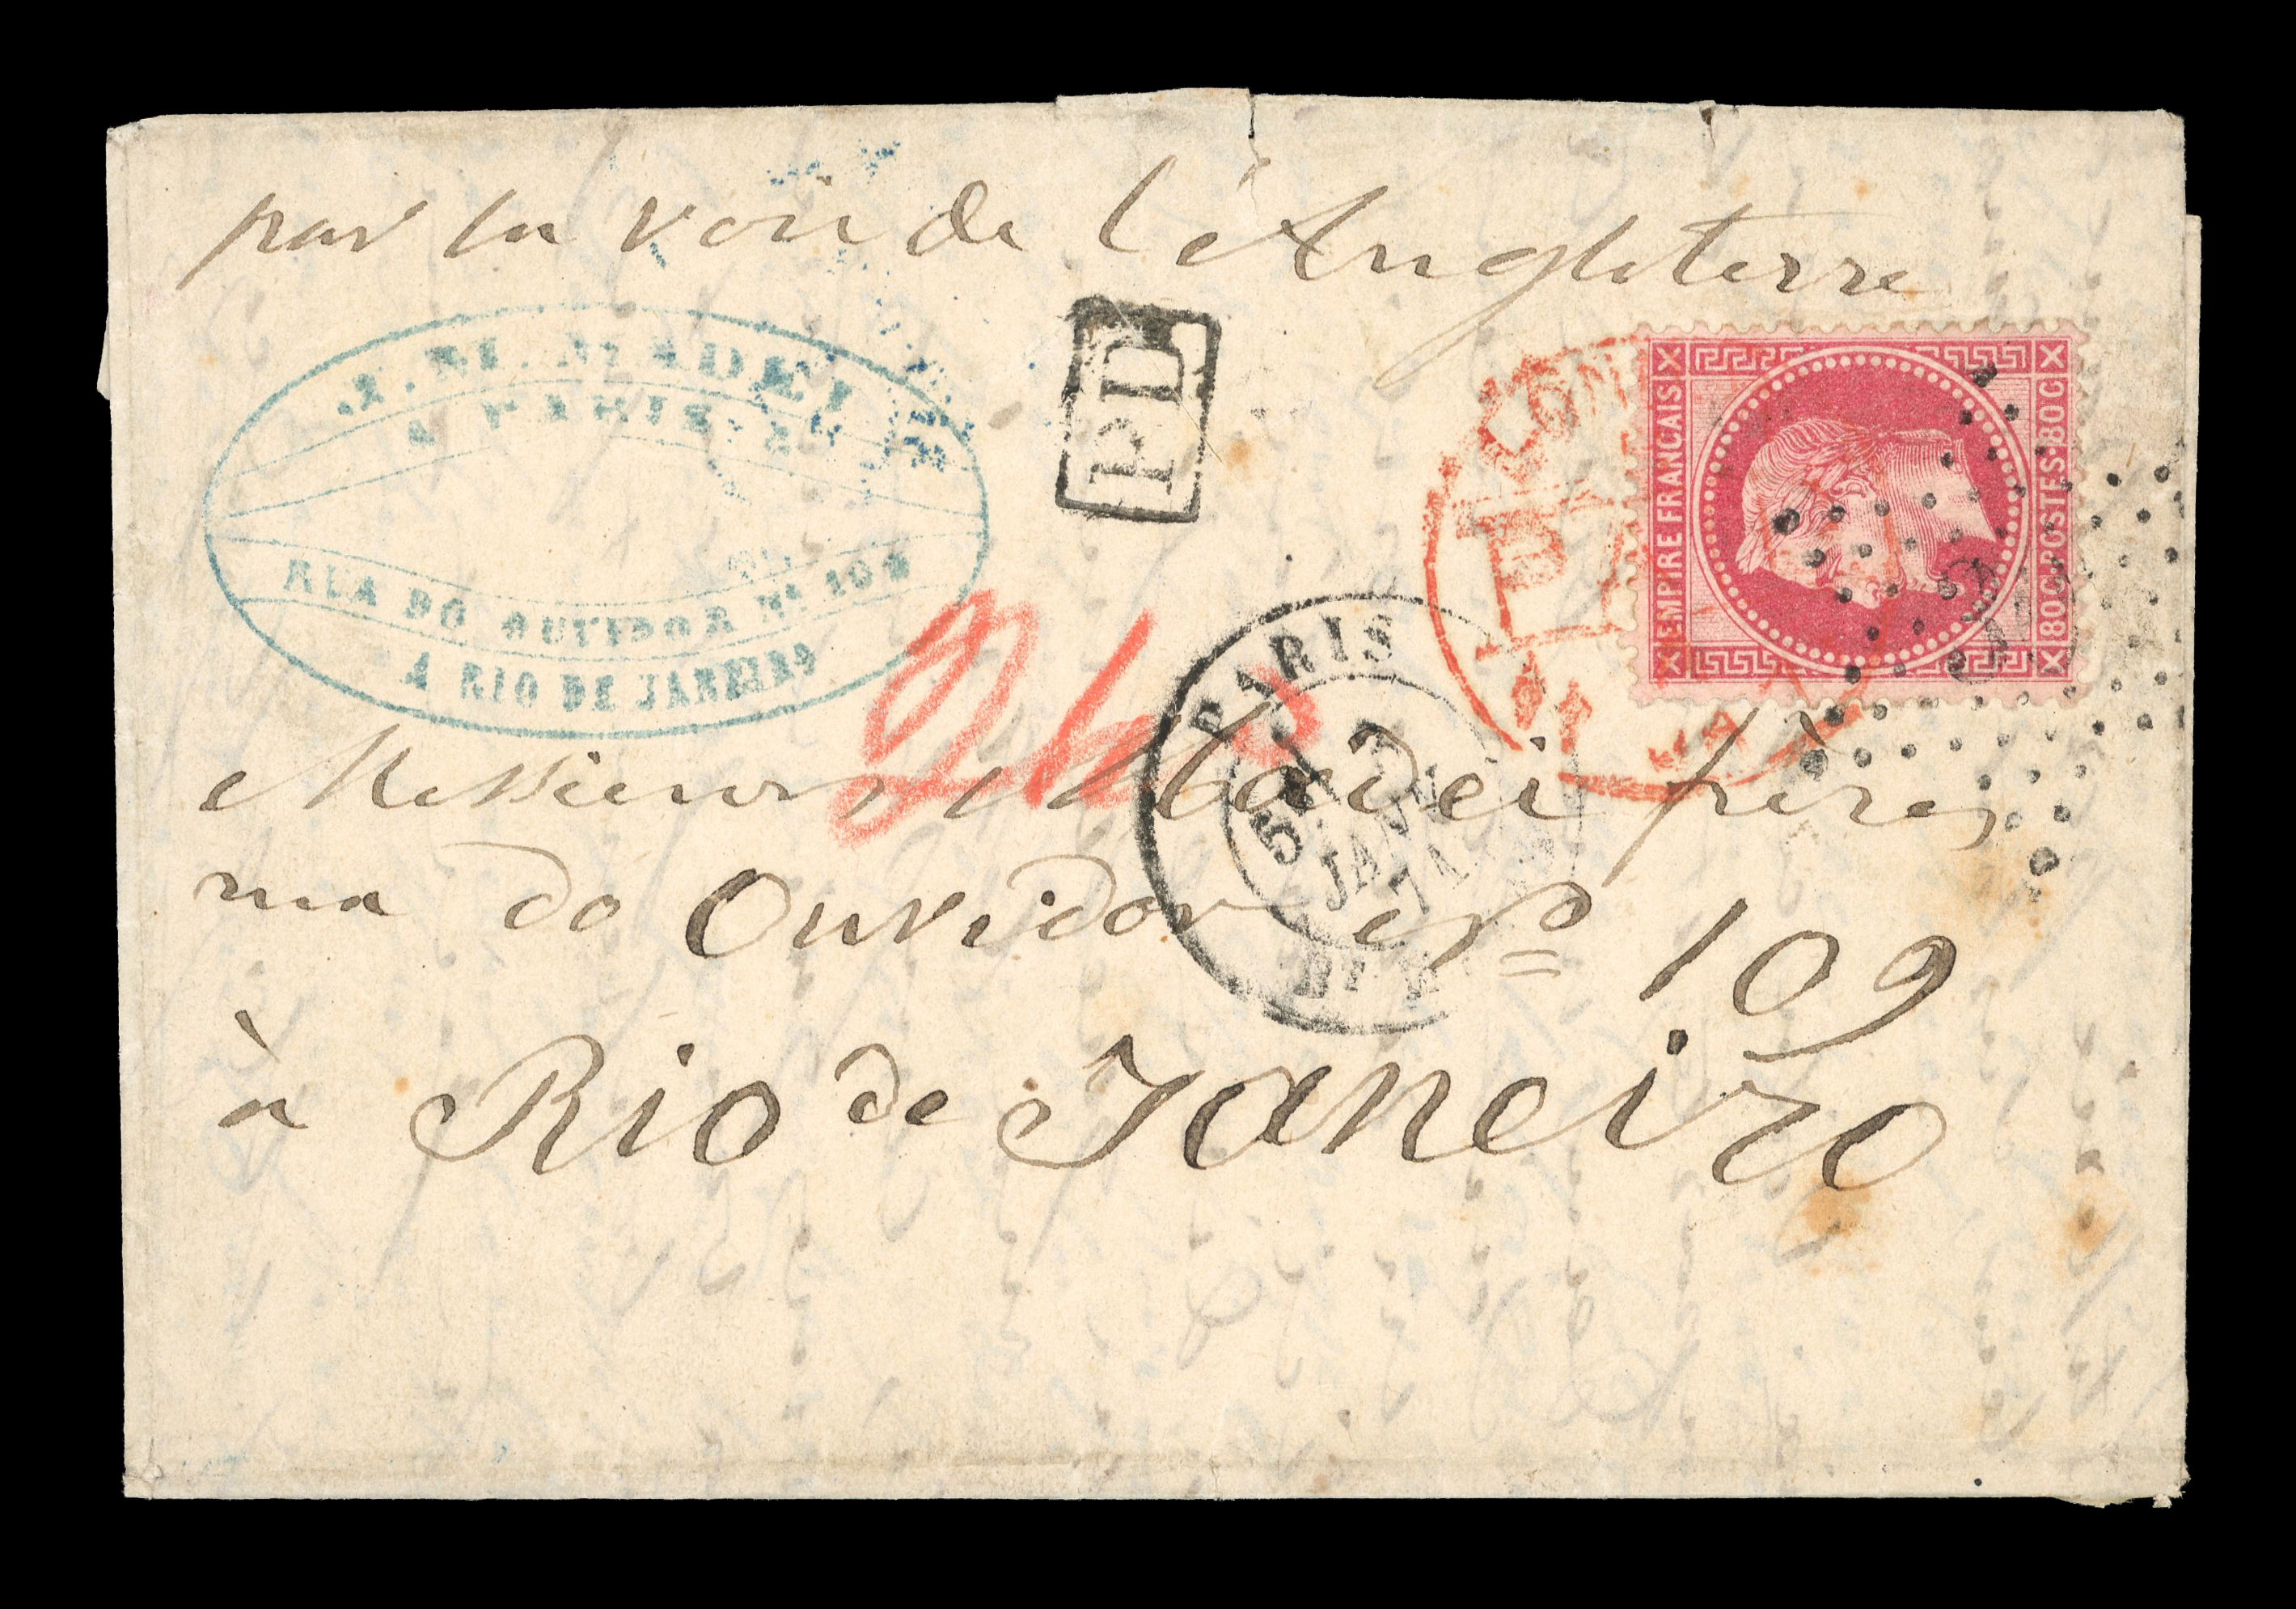 par la voie de l'Angleterre
J. M. MADEI
A PARIS
RUA DO OUVIDOR Nº 109
A RIO DE JANEIRO
PD
LONDON
PAID
EMPIRE FRANCAIS
80 C POSTES 80 C
PARIS
5E
JANV
71
Messieurs Madei frères
rua do Ouvidor Nº 109
à Rio de Janeiro